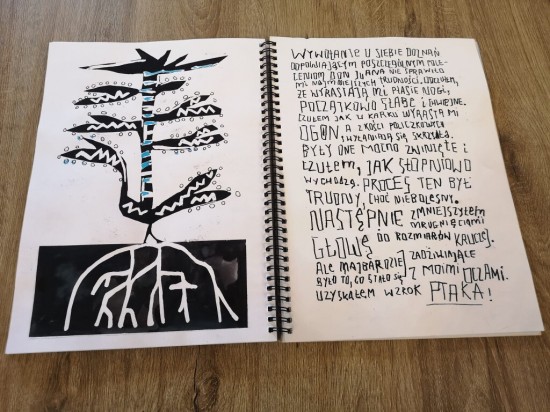 WYWOŁANIE U SIEBIE DOZNAŃ
ODPOWIADAJĄCYM POSZCZEGÓLNYM POLE-
CENIOM DON JUANA NIE SPRAWIŁO
MI NAJMNIEJSZYCH TRUDNOŚCI. CZUŁEM,
ŻE WYRASTAJĄ MI PTASIE NOGI,
POCZĄTKOWO SŁABE I CHWIEJNE.
CZUŁEM JAK U KARKU WYRASTA MI
OGON, A Z KOŚCI POLICZKOWYCH
WYŁANIAJĄ SIĘ SKRZYDŁA.
BYŁY ONE MOCNO ZWINIĘTE I
CZUŁEM, JAK STOPNIOWO
WYCHODZĄ. PROCES TEN BYŁ
TRUDNY, CHOĆ NIEBOLESNY.
NASTĘPNIE ZMNIEJSZYŁEM
MRUGNIĘCIAMI
GŁOWĘ DO ROZMIARÓW KRUCZEJ.
ALE NAJBARDZIEJ ZADZIWIAJĄCE
BYŁO TO, CO STAŁO SIĘ Z MOIMI OCZAMI.
UZYSKAŁEM WZROK PTAKA!